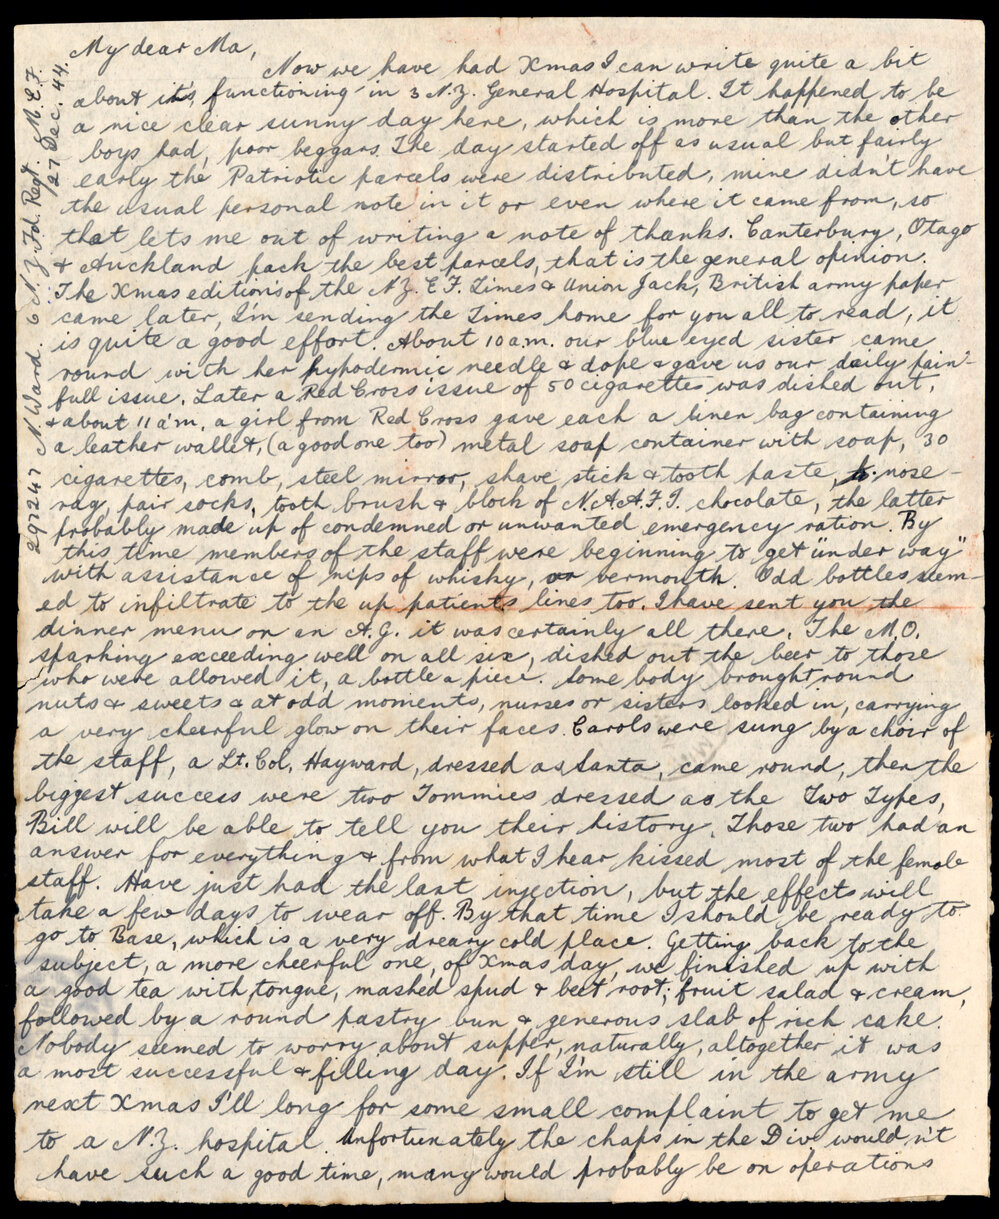 My dear Ma,
Now we have had Xmas I can write quite a bit
about it's functioning in 3 N.Z. General Hospital. It happened to be
a nice clear sunny day here, which is more than the other
boys had, poor beggars. The day started off as usual but fairly
early the Patriotic parcels were distributed, mine didn't have
the usual personal note in it or even where it came from, so
that lets me out of writing a note of thanks. Canterbury, Otago
& Auckland pack the best parcels, that is the general opinion.
The Xmas editions of the N.Z.E.F. Times & Union Jack, British army paper
came later, I'm sending the Times home for you all to read, it
is quite a good effort. About 10 a.m. our blue eyed sister came
round with her hypodermic needle & dope & gave us our daily pain-
full issue. Later a Red Cross issue of 50 cigarettes was dished out,
& about 11 a.m. a girl from Red Cross gave each a linen bag containing
a leather wallet, (a good one too) metal soap container with soap, 30
cigarettes, comb, steel mirror, shave stick & tooth paste, nose-
rag, pair socks, tooth brush & block of N.A.A.F.I. chocolate, the latter
probably made up of condemned or unwanted emergency ration. By
this time members of the staff were beginning to get "under way"
with assistance of nips of whisky, or vermouth. Odd bottles seem-
ed to infiltrate to the up patients lines too. I have sent you the
dinner menu on an A.G. it was certainly all there. The M.O.
sparking exceeding well on all six, dished out the beer to those
who were allowed it, a bottle a piece. Some body brought round
nuts & sweets & at odd moments, nurses or sisters looked in, carrying
a very cheerful glow on their faces. Carols were sung by a choir of
the staff, a Lt. Col. Hayward, dressed as Santa, came round, then the
biggest success were two Tommies dressed as the Two Types,
Bill will be able to tell you their history. Those two had an
answer for everything & from what I hear kissed most of the female
staff. Have just had the last injection, but the effects will
take a few days to wear off. By that time I should be ready to
go to Base, which is a very dreary cold place. Getting back to the
subject, a more cheerful one, of Xmas day, we finished up with
a good tea with tongue, mashed spud & beet root; fruit salad & cream,
followed by a round pastry bun & generous slab of rich cake.
Nobody seemed to worry about supper, naturally, altogether it was
a most successful & filling day. If I'm still in the army
next Xmas I'll long for some small complaint to get me
to a N.Z. hospital. Unfortunately the chaps in the Div would,n't
have such a good time, many would probably be on operations
297247 N Ward. 6 N.Z. Fd. Regt. M.E.F.
27 Dec. 44.